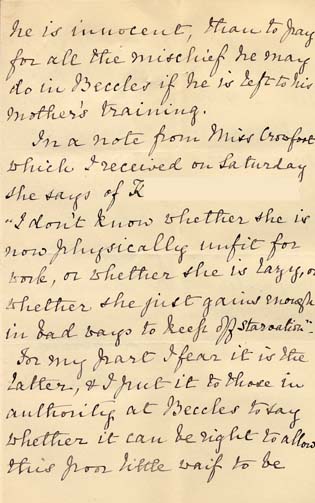 he is innocent, than to pay
for all the mischief he may
do in Beccles if he is left to his
mother's training.
In a note from Miss Crowfoot
which I received on Saturday
she says of K
"I don't know whether she is
now physically unfit for
work, or whether she is lazy, or
whether she just gains enough
in bad ways to keep off starvation".
For my part I fear it is the
latter, & I put it to those in
authority at Beccles to say
whether it can be right to allow
this poor little waif to be